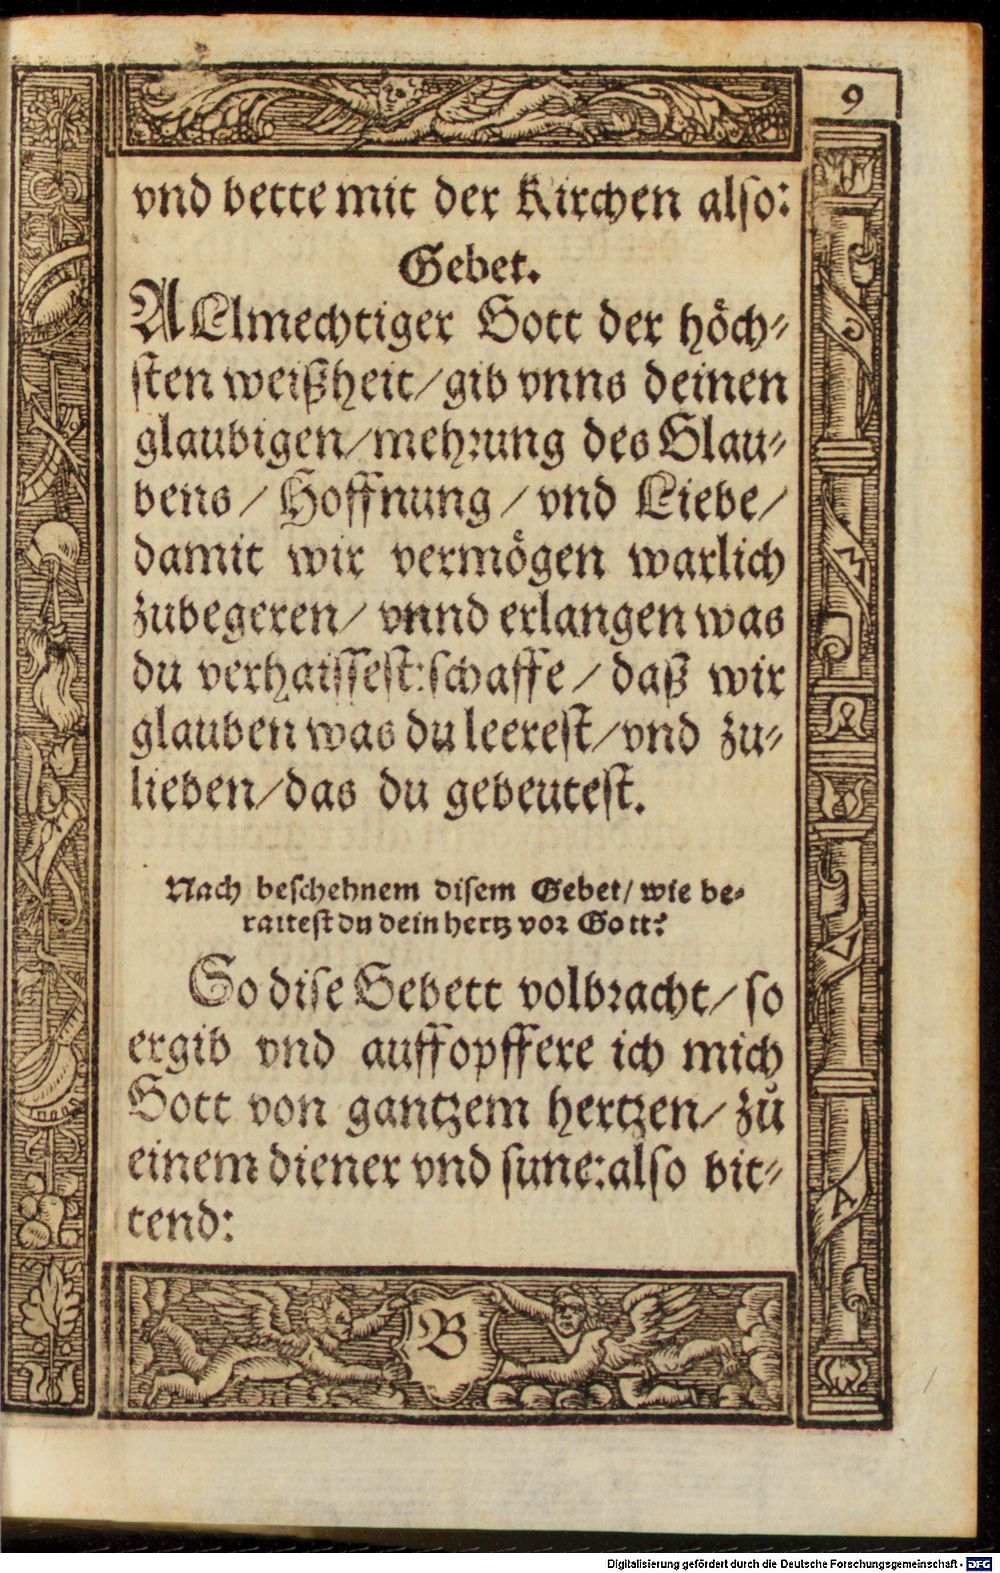 9
vnd bette mit der Kirchen also:
Gebet.
ALlmechtiger Gott der höch⸗
sten weißheit/gib vnns deinen
glaubigen/mehrung des Glau⸗
bens / Hoffnung / vnd Liebe/
damit wir vermögen warlich
zubegeren/ vnnd erlangen was
du verhaissest:schaffe / daß wir
glauben was du leerest/vnd zu⸗
lieben/das du gebeutest.
Nach beschehnem disem Gebet/ wie be⸗
raittest du dein hertz vor Gott?
So dise Gebett volbracht/ so
ergib vnd auffopffere ich mich
Gott von gantzem hertzen/ zů
einem diener vnd sune:also bit⸗
tend:
B
Digitalisierung gefördert durch die Deutsche Forschungsgemeinschaft - DFG